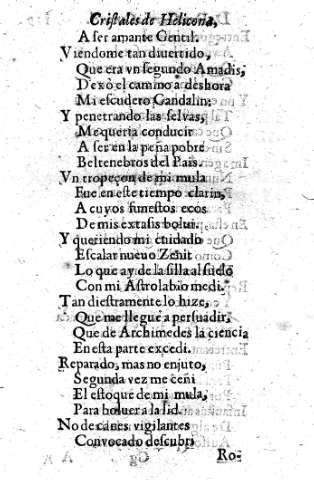 Cristales de Helicona,
A ser amante Gentil.
Viendome tan diuertido,
Que era vn segundo Amadis,
Dexò el camino a deshora
Mi escudero Gandalin:
Y penetrando las seluas,
Me queria conducir
A ser en la peña pobre
Beltenebros del Pais.
Vn tropeçon de mi mula
Fue en este tiempo clarin,
A cuyos funestos ecos
De mis extasis bolui.
Y queriendo mi cuidado
Escalar nueuo Zenit
Lo que ay de la silla al suelo
Con mi Astrolabio medi.
Tan diestramente lo hize,
Que me lleguè a persuadir,
Que de Archimedes la ciencia
En esta parte excedi.
Reparado, mas no enjuto,
Segunda vez me ceñi
El estoque de mi mula,
Para boluer a la lid.
No de canes vigilantes
Convocado descubri
Gg
Ro-